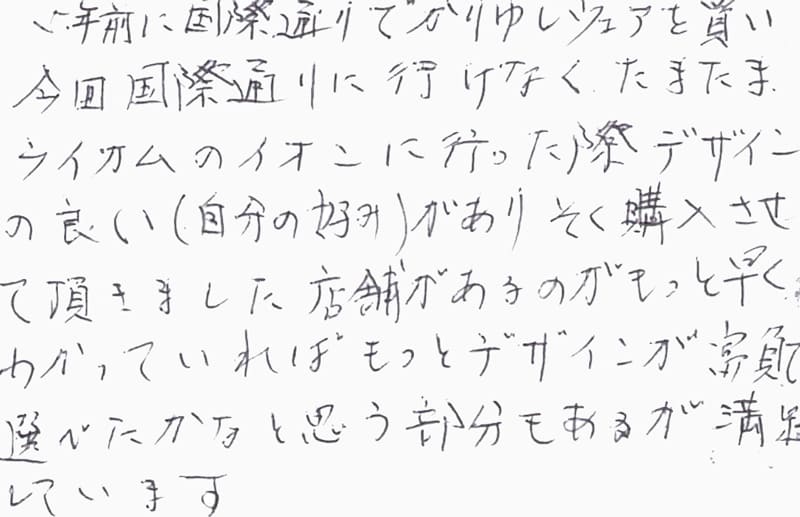 年前に国際通りでかりゆしウェアを買い
今回国際通りに行けなくたまたま
ライカムのイオンに行った際デザイン
の良い(自分の好み)がありそく購入させ
て頂きました店舗があるのがもっと早く
わかっていればもっとデザインが
選べたかなと思う部分もあるが満足
しています